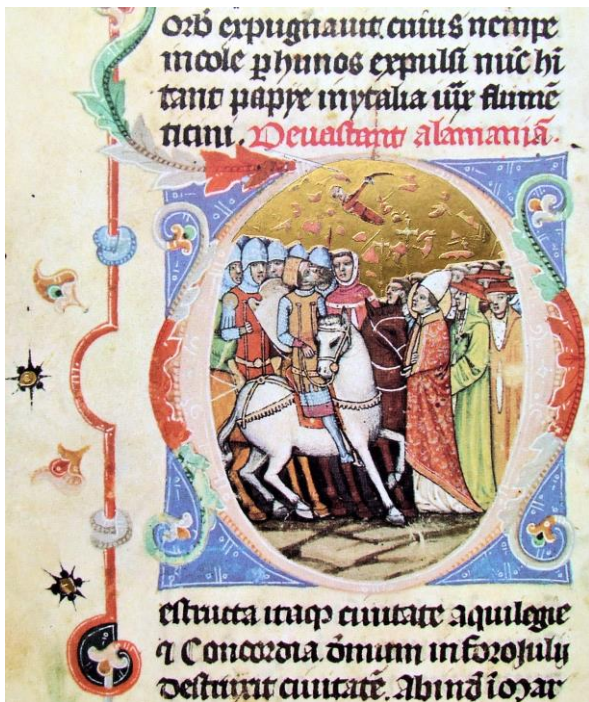 orb expugnauit cuius nempe
incole ꝑ hunos expulsi nūc hi
tant papye inytalia iux̄ flumē
ticini. Deuastant alamaniā.
estructa itaqꝫ ciuitate aquilegie
⁊ Concordia. in foroiuly
destruxit ciuitatē. Abind̄ ī mar